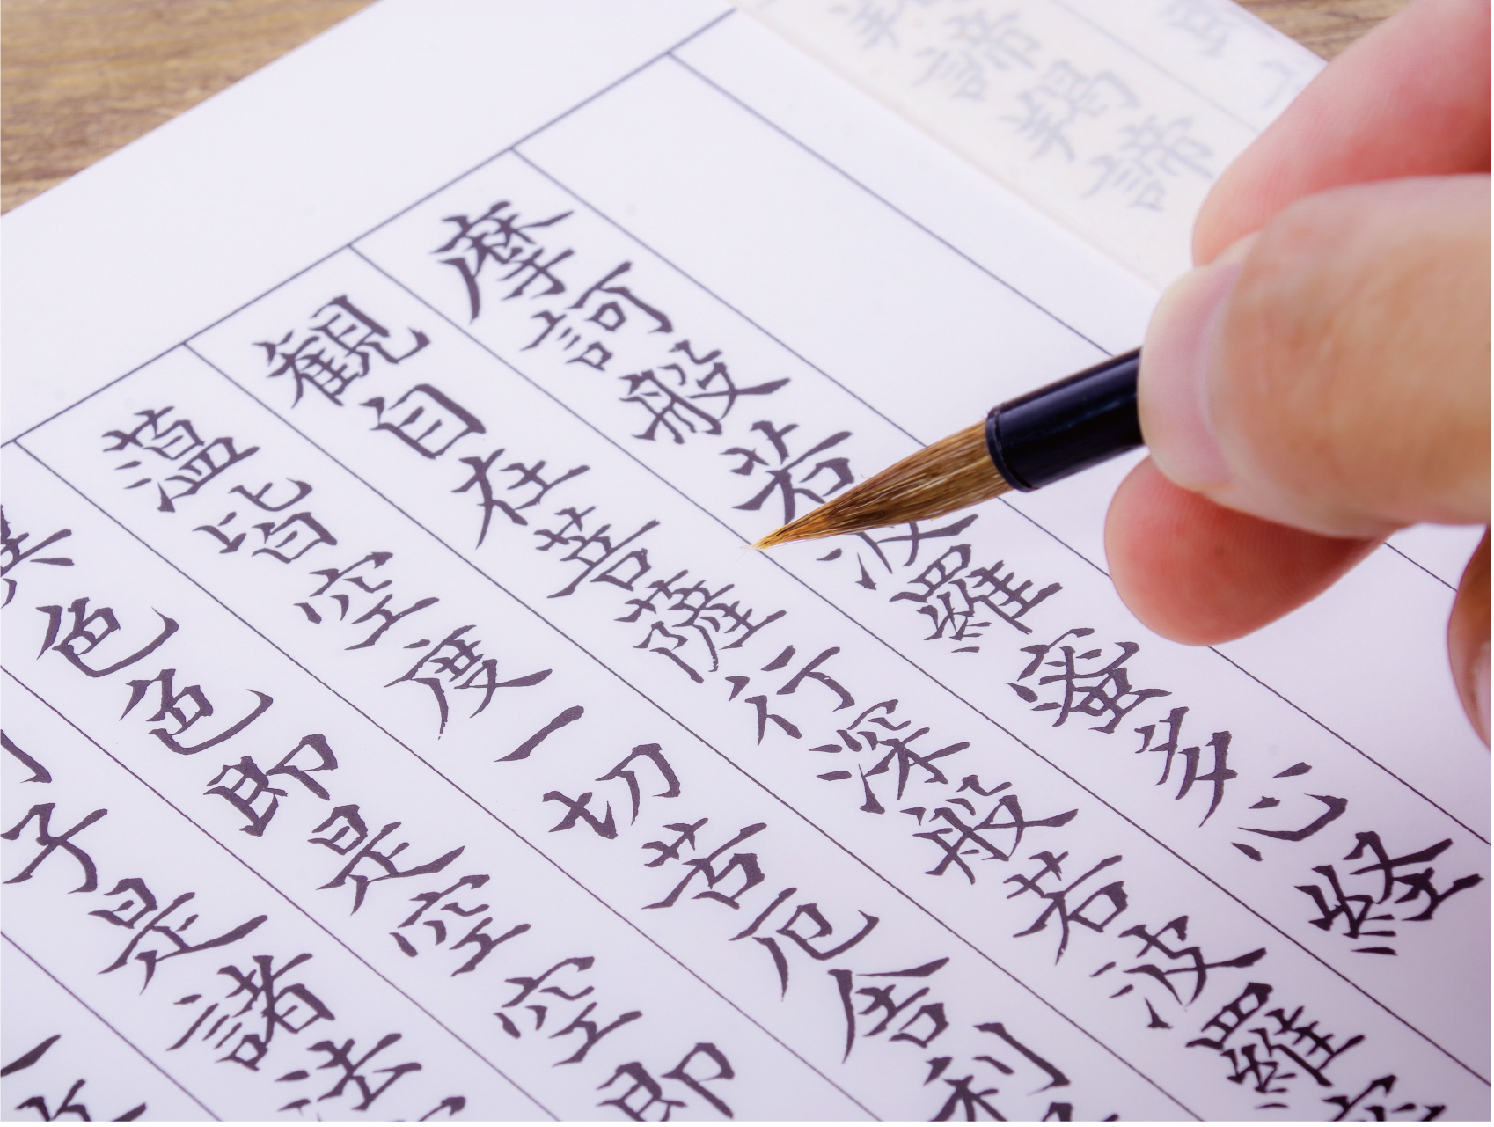 諦羯諦
摩訶般若波羅蜜多心経
観自在菩薩行深般若波羅
蘊皆空度一切苦厄舎利
色色即是空空即
子是諸法